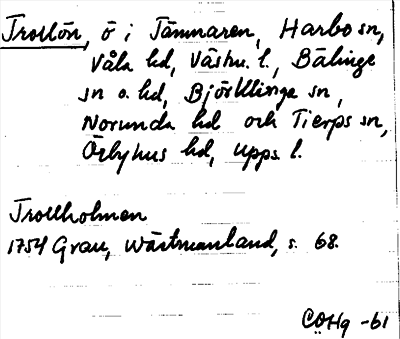 Trollön, ö i Tämnaren, Harbo sn,
Våla hd, Västm. l., Bälinge
sn o. hd, Björklinge sn,
Norunda hd och Tierps sn,
Örbyhus hd, Upps. l.
Trollholmen
1754 Grau, Wästmanland, s. 68.
CÖHg -61